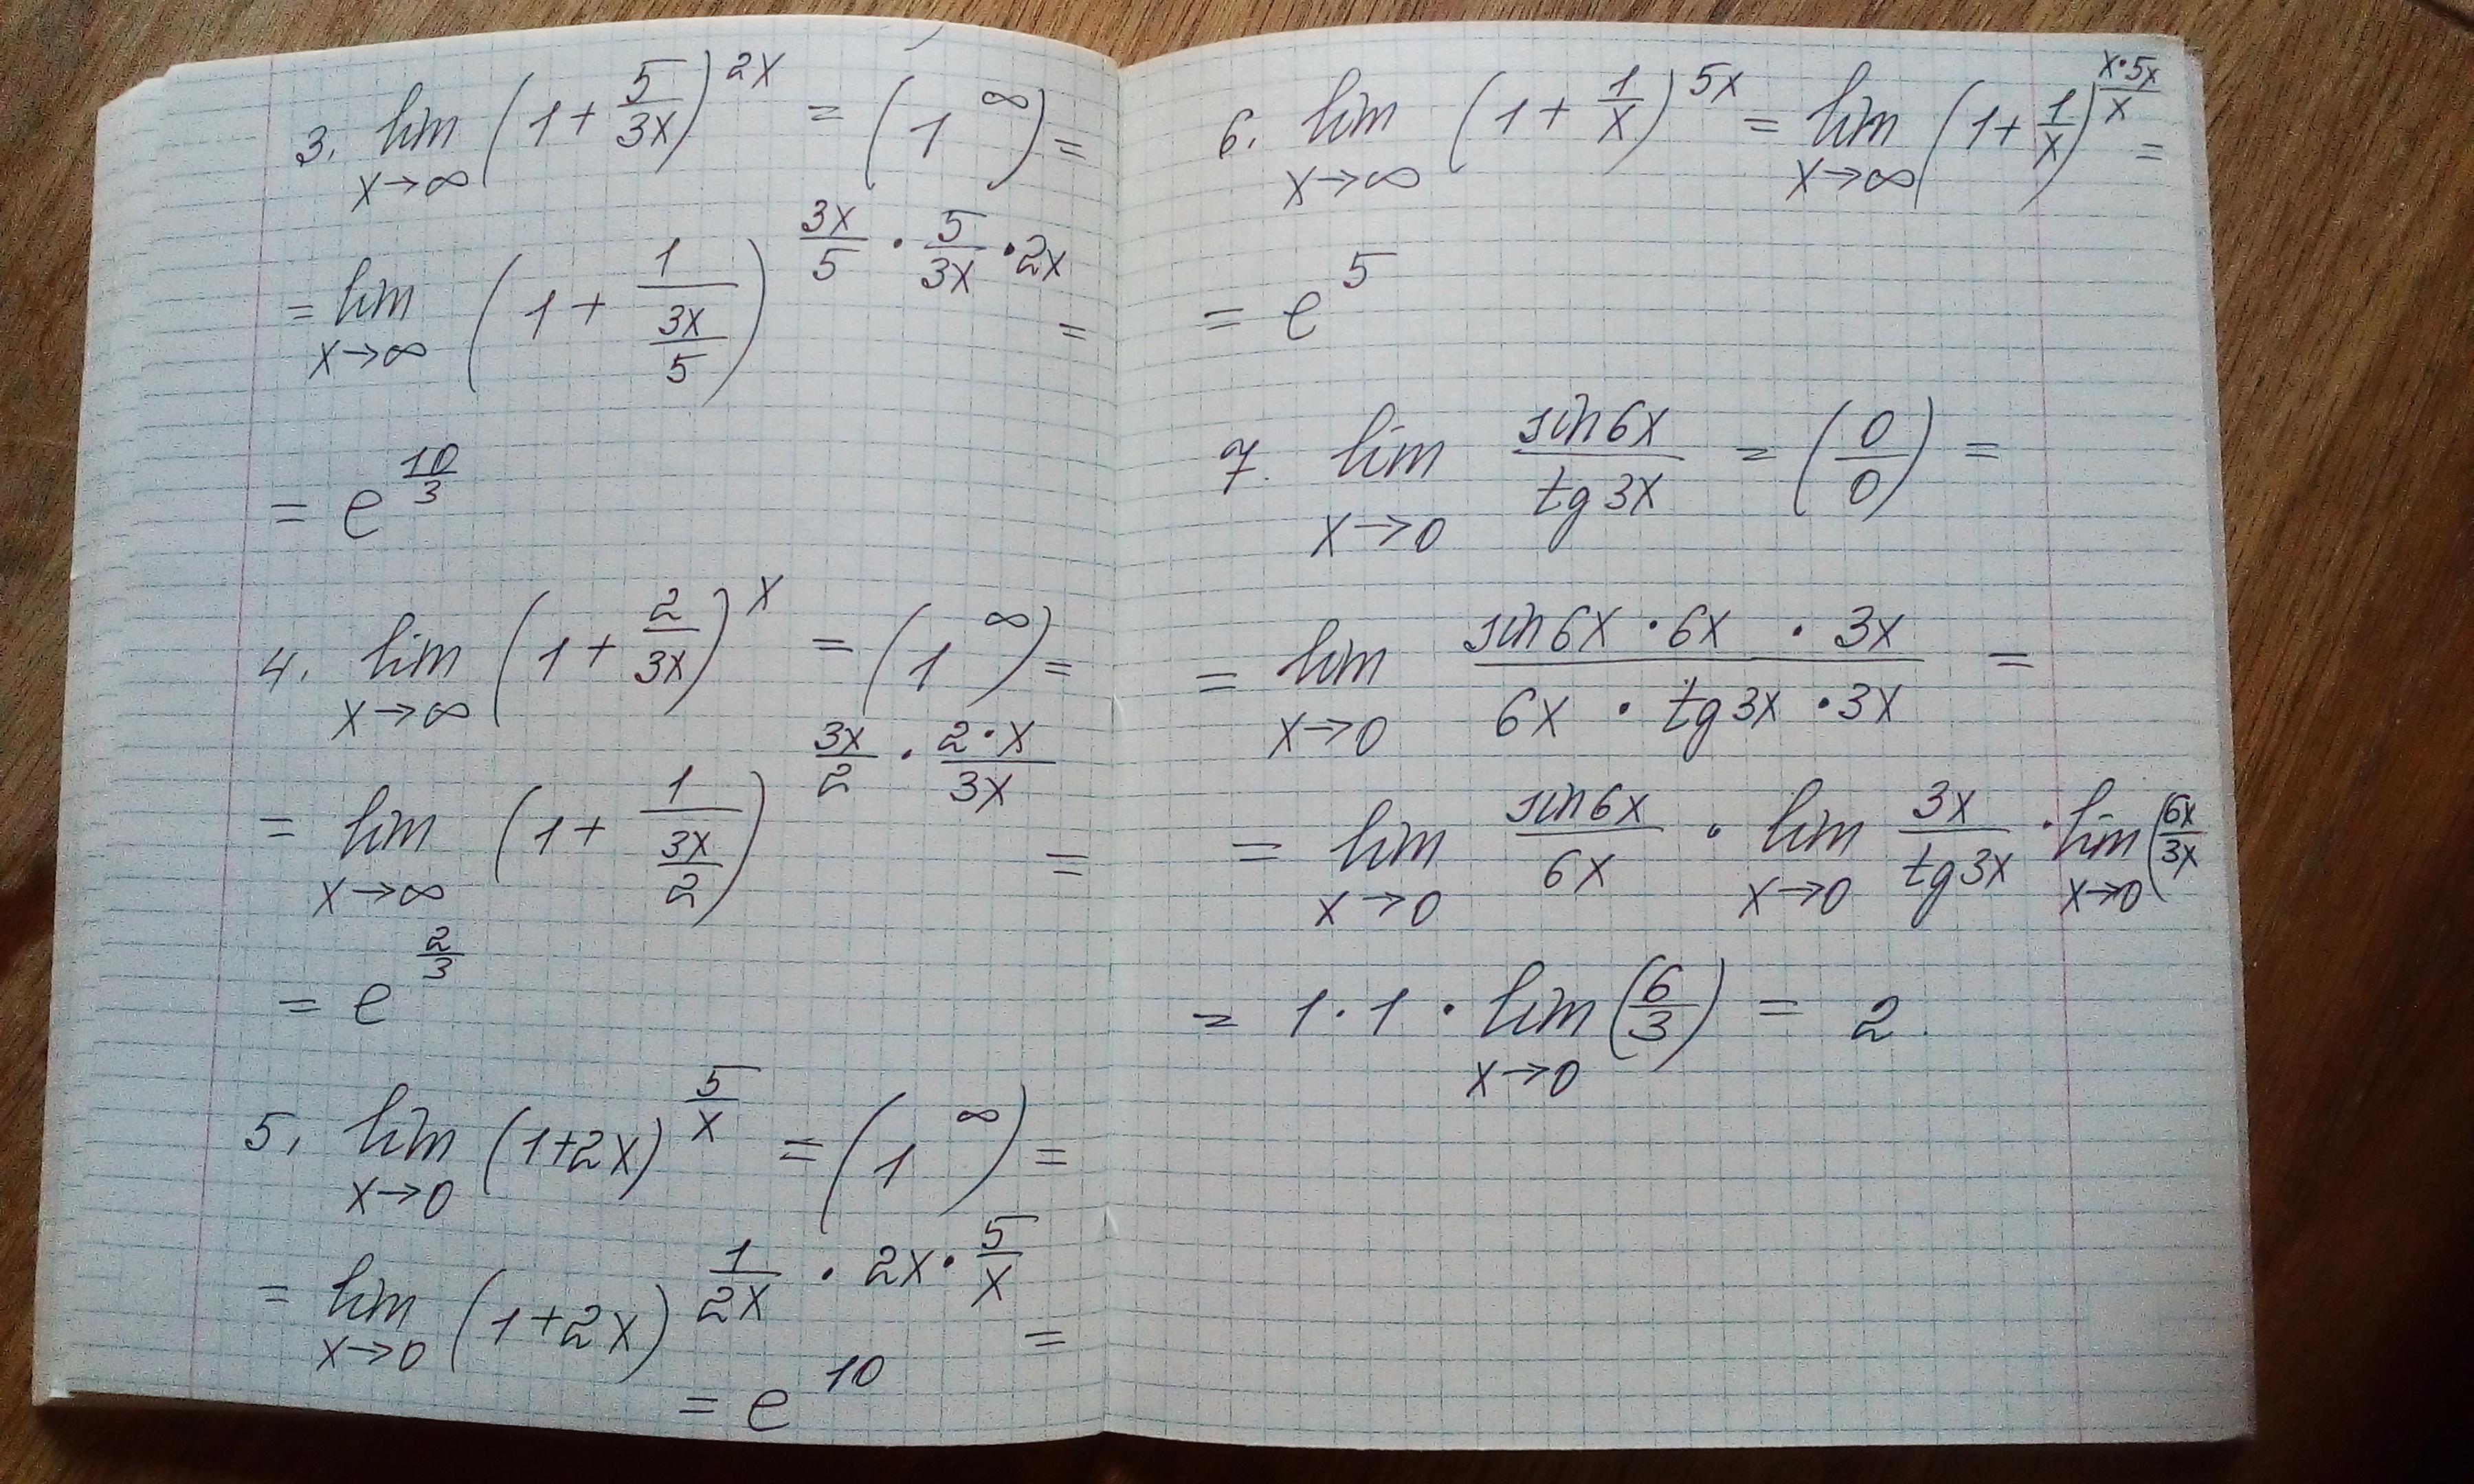 3. lim x→∞ (1 + 5/3x)^2x = (1^∞) =
= lim x→∞ (1 + 1/(3x/5))^(3x/5 · 5/3x · 2x) =
= e^(10/3)
4. lim x→∞ (1 + 2/3x)^x = (1^∞) =
= lim x→∞ (1 + 1/(3x/2))^(3x/2 · 2·x/3x) =
= e^(2/3)
5. lim x→0 (1+2x)^(5/x) = (1^∞) =
= lim x→0 (1+2x)^(1/2x · 2x · 5/x) =
= e^10
6. lim x→∞ (1 + 1/x)^5x = lim x→∞ (1 + 1/x)^(x·5x/x) =
= e^5
7. lim x→0 sin6x/tg3x = (0/0) =
= lim x→0 (sin6x · 6x · 3x)/(6x · tg3x · 3x) =
= lim x→0 sin6x/6x · lim x→0 3x/tg3x · lim x→0 (6x/3x
= 1 · 1 · lim x→0 (6/3) = 2.